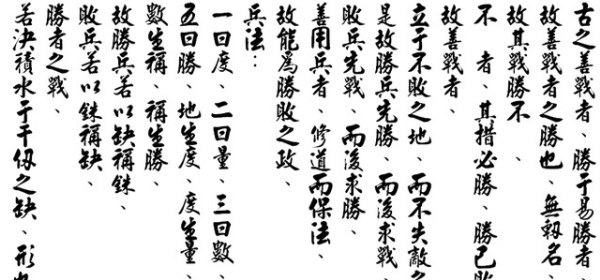 古之善戰者、勝于易勝者、
故善戰者之勝也、無名、
故其戰勝不、
不 者、其措必勝、勝已敗
故善戰者、
立于不敗之地、而不失敵
是故勝兵先勝、而後求戰、
敗兵先戰、而後求勝、
善用兵者、修道而保法、
故能爲勝敗之政、
兵法：
一曰度、二曰量、三曰數、
五曰勝、地生度、度生量、
數生稱、稱生勝、
故勝兵若以缺稱銖、
敗兵若以銖稱缺、
勝者之戰、
若決積水于千仞之缺、形也